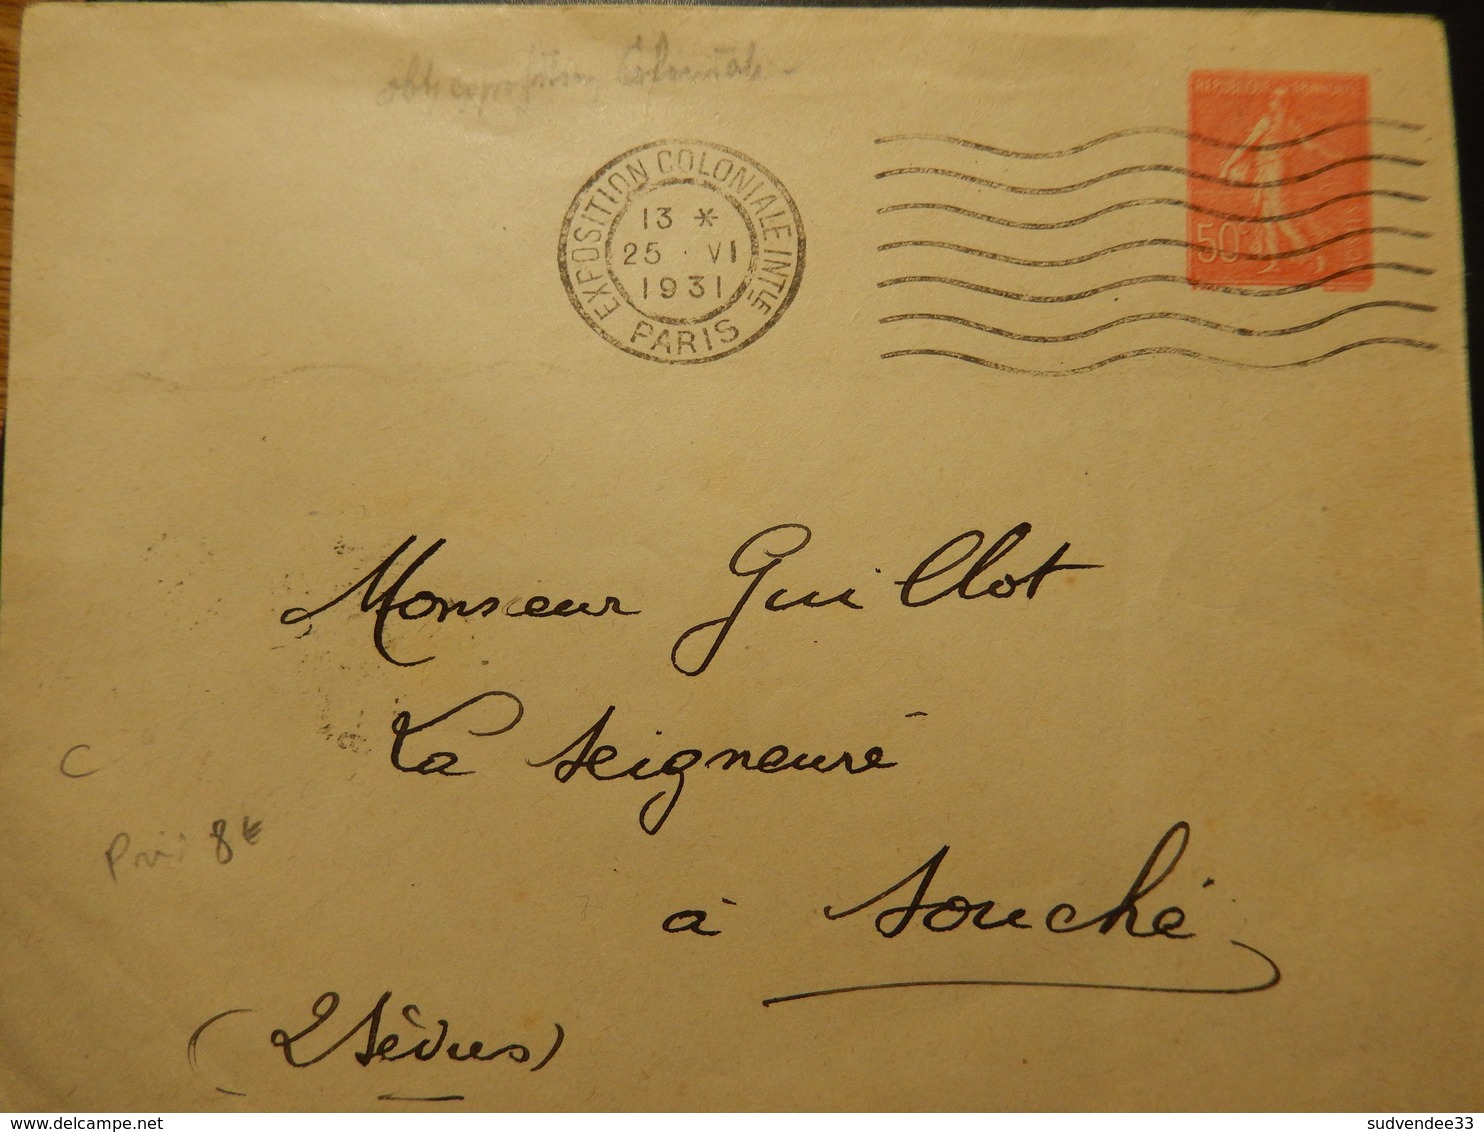 Exposition Coloniale
REPUBLIQUE FRANÇAISE
EXPOSITION COLONIALE INTLE
13 *
25 · VI
1931
PARIS
50c
Monsieur Guillot
La Seigneurè
à Souché
(2 Sèvres)
C
Prix 8€
delcampe.net
sudvendee33